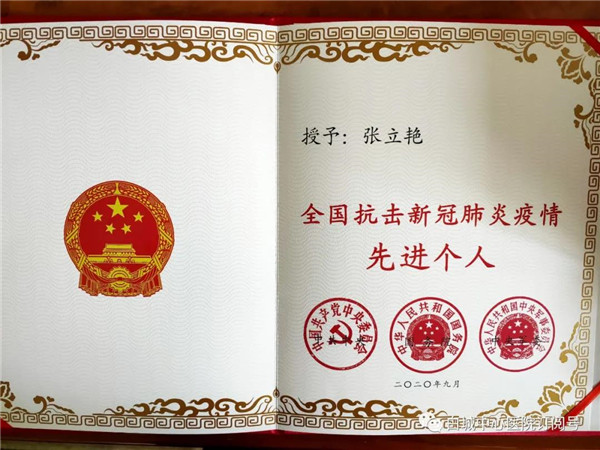 授予：张立艳
全国抗击新冠肺炎疫情
先进个人
中国共产党中央委员会
中华人民共和国国务院
中华人民共和国中央军事委员会
二〇二〇年九月